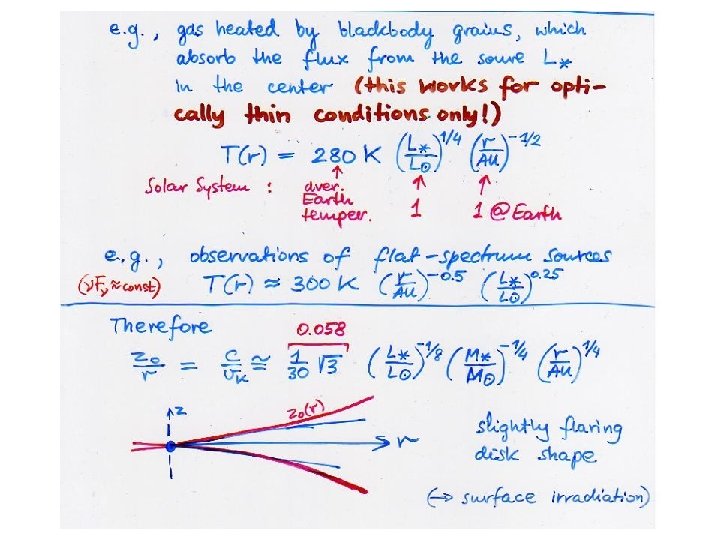 e.g., gas heated by blackbody grains, which
absorb the flux from the soure L*
in the center (this works for opti-
cally thin conditions only!)
T(r) = 280 K (L*/L⊙)^1/4 (r/AU)^-1/2
Solar System : aver. Earth temper. ↑ 1 ↑ 1 @ Earth ↑
e.g., observations of flat-spectrum sources
(νFν≈const) T(r) ≈ 300 K (r/AU)^-0.5 (L*/L⊙)^0.25
Therefore 0.058
z₀/r = c/v_K ≅ 1/30 √3 (L*/L⊙)^-1/8 (M*/M⊙)^-1/4 (r/AU)^1/4
z z₀(r)
r
slightly flaring
disk shape
(→ surface irradiation)